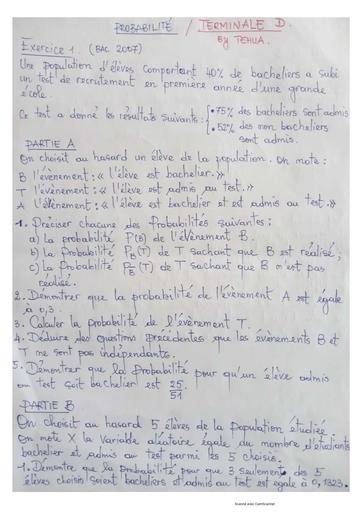 PROBABILITÉ / TERMINALE D.
By TEHUA.
Exercice 1. (BAC 2007)
Une population d'élèves comportant 40% de bacheliers a subi
un test de recrutement en première année d'une grande
école.
Ce test a donné les résultats suivants : { • 75% des bacheliers sont admis
• 52% des non bacheliers
sont admis.
PARTIE A
On choisit au hasard un élève de la population. On note :
B l'évènement : « l'élève est bachelier. »
T l'évènement : « l'élève est admis au test. »
A l'évènement : « l'élève est bachelier et est admis au test. »
1. Préciser chacune des probabilités suivantes :
a) La probabilité P(B) de l'évènement B.
b) La probabilité P_B(T) de T sachant que B est réalisé,
c) La Probabilité P_B̅(T) de T sachant que B n'est pas
réalisé.
2. Démontrer que la probabilité de l'évènement A est égale
à 0,3.
3. Calculer la probabilité de l'évènement T.
4. Déduire des questions précédentes que les évènements B et
T ne sont pas indépendants.
5. Démontrer que la probabilité pour qu'un élève admis
au test soit bachelier est 25/51
PARTIE B
On choisit au hasard 5 élèves de la population étudiée.
On note X la variable aléatoire égale au nombre d'étudiants
bachelier et admis au test parmi les 5 choisis.
1. Démontre que la probabilité pour que 3 seulement des 5
élèves choisis soient bacheliers et admis au test est égale à 0,1323.
Scanné avec CamScanner